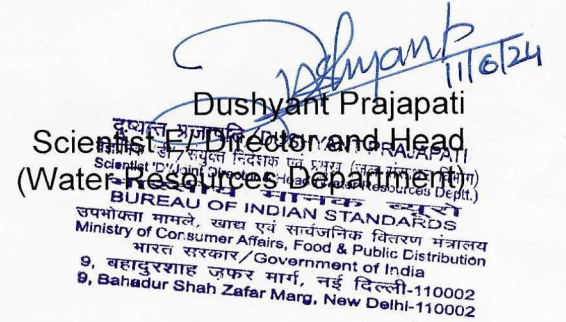 Dushyant
11/6/24
Dushyant Prajapati
Scientist E/ Director and Head
(Water Resources Department)
दुष्यन्त प्रजापति/DUSHYANT PRAJAPATI
वैज्ञानिक 'डी'/संयुक्त निदेशक एवं प्रमुख (जल संसाधन विभाग)
Scientist 'D'/Joint Director & Head (Water Resources Deptt.)
भारतीय मानक ब्यूरो
BUREAU OF INDIAN STANDARDS
उपभोक्ता मामले, खाद्य एवं सार्वजनिक वितरण मंत्रालय
Ministry of Consumer Affairs, Food & Public Distribution
भारत सरकार/Government of India
9, बहादुरशाह ज़फर मार्ग, नई दिल्ली-110002
9, Bahadur Shah Zafar Marg, New Delhi-110002